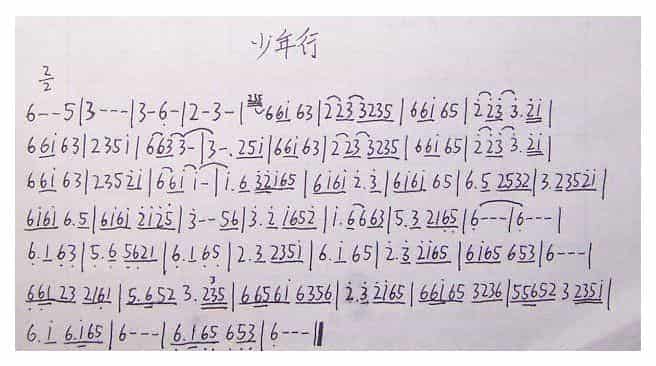 少年行
2/2
6--5|3---|3-6-|2-3-|235 66i 63|223 3235|66i 65|223 3.2i|
66i 63|235i|663 3-|3-.25i|66i 63|223 3235|66i 65|223 3.2i|
66i 63|2352i|66i i-|i.6 32i65|6i6i 2.3|6i6i 65|6.5 2532|3.2352i|
6i6i 6.5|6i6i 2i25|3--56|3.2 i652|i.6663|5.3 2165|6---|6---|
6.163|5.65621|6.165|2.3.235i|6.i65|2.32i65|6i65 653|6---|
661 23 2161|5.652 3.235|6656i 6356|2.32i65|66i65 3236|55652 3 235i|
6.i 6.i65|6---|6.165 653|6---‖